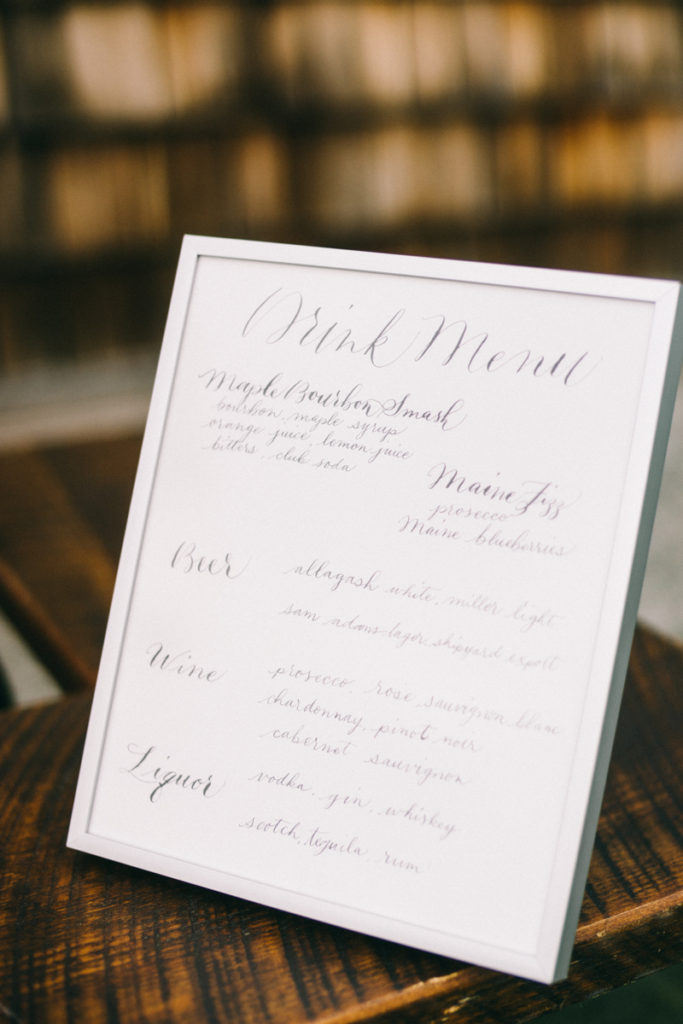 Drink Menu
Maple Bourbon Smash
bourbon, maple syrup
orange juice, lemon juice
bitters, club soda
Maine Fizz
prosecco
Maine blueberries
Beer allagash white, miller light
sam adams lager, shipyard export
Wine prosecco, rose, sauvignon blanc
chardonnay, pinot noir
cabernet sauvignon
Liquor vodka, gin, whiskey
scotch, tequila, rum